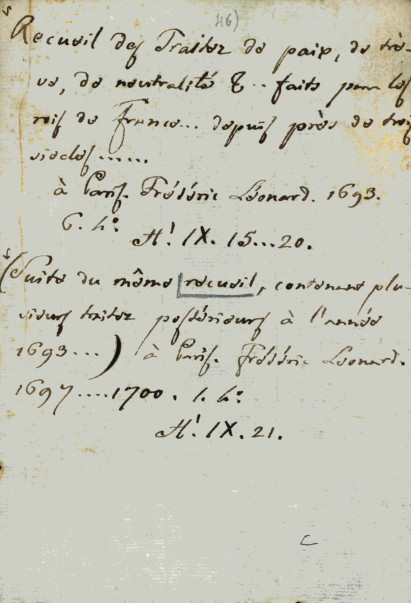 s
46)
Recueil des Traitez de paix, de trè-
ve, de neutralité &.. faits par les
rois de France... depuis près de trois
siecles......
à Paris. Fréderic Léonard. 1693.
6. 4º
H! IX. 15...20.
s
(Suite du même recueil, contenant plu-
sieurs traitez postérieurs à l'année
1693...) à Paris. Fréderic Léonard.
1697....1700. 1. 4º
H! IX. 21.
C